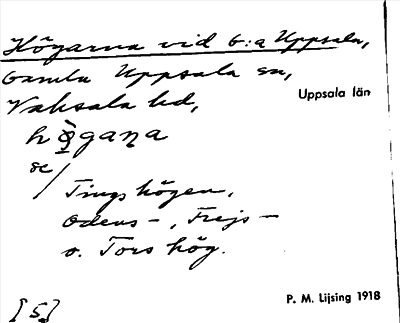 Högarna vid G:a Uppsala,
Gamla Uppsala sn,
Vaksala hd,
Uppsala län
se/
Tingshögen,
Odens-, Frejs-
o. Tors hög.
P. M. Lijsing 1918
[5]